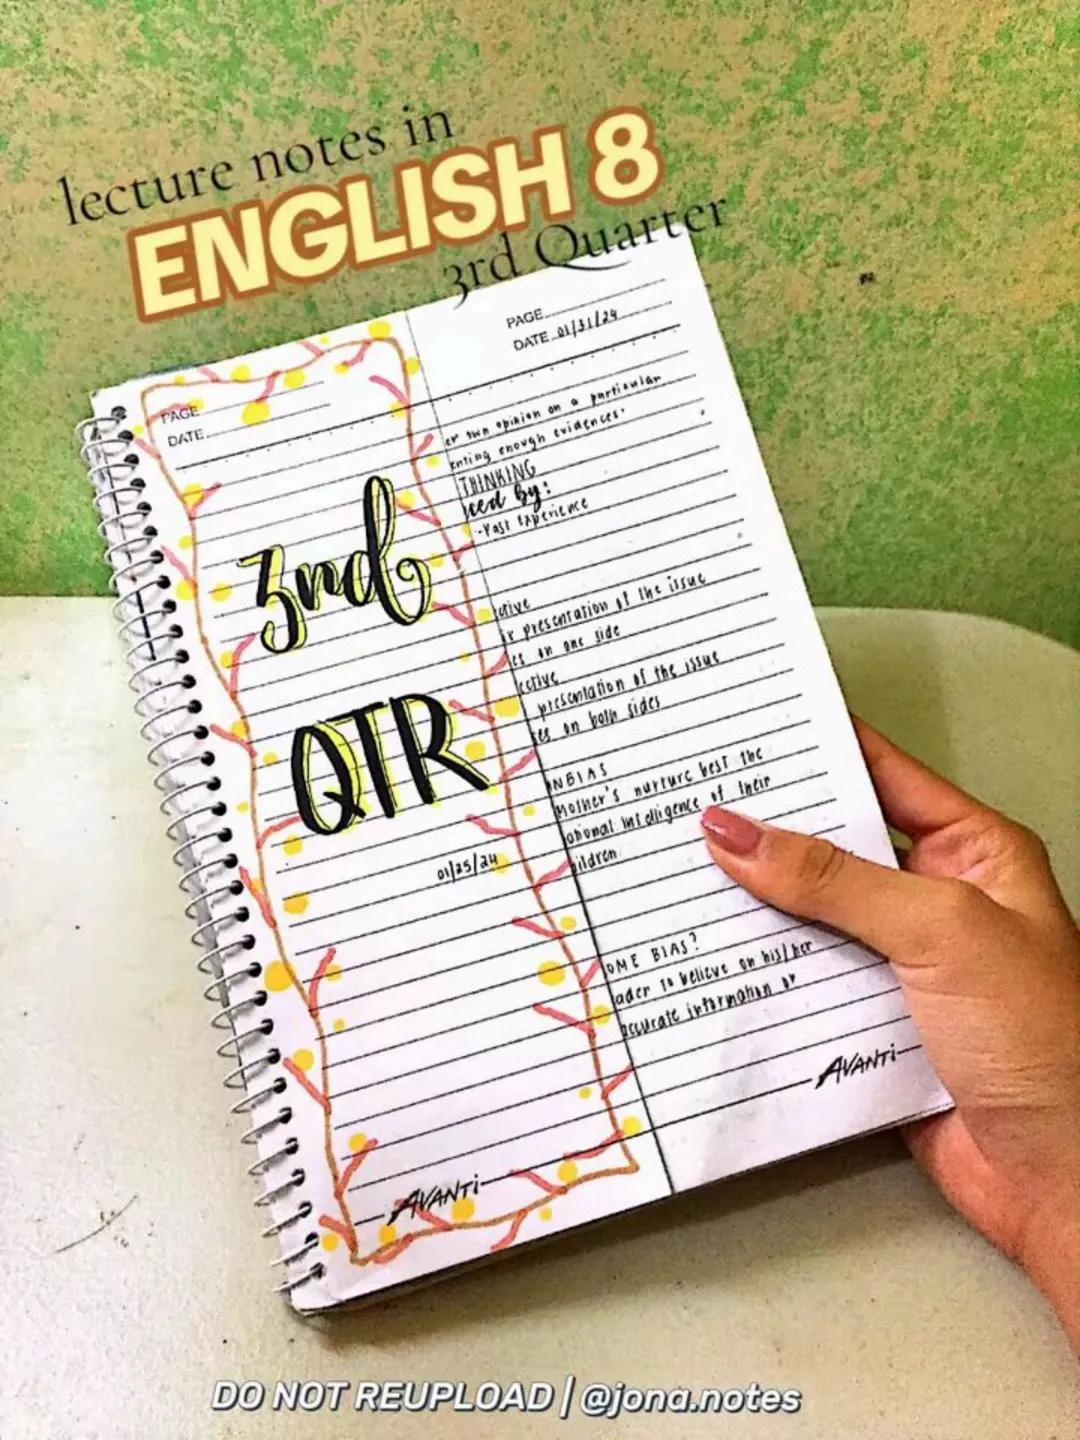 lecture notes in
ENGLISH 8
3rd Quarter
PAGE
DATE
3rd
QTR
01/25/24
AVANTi
PAGE
DATE 01/31/24
er own opinion on a particular
enting enough evidences.
THINKING
ced by:
-Past Experience
ctive
ir presentation of the issue
es on one side
ective
presentation of the issue
es on both sides
NBIAS
Mother's nurture best the
otional intelligence of their
ildren
OME BIAS?
ader to believe on his/her
accurate information or
AVANTi
DO NOT REUPLOAD | @jona.notes